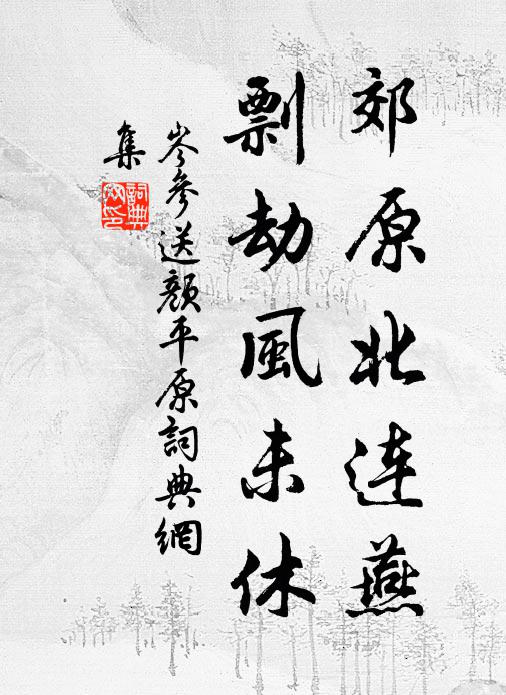 郊原北连燕
剽劫風未休
岑參送顏平原詞典網
集
詞典網印